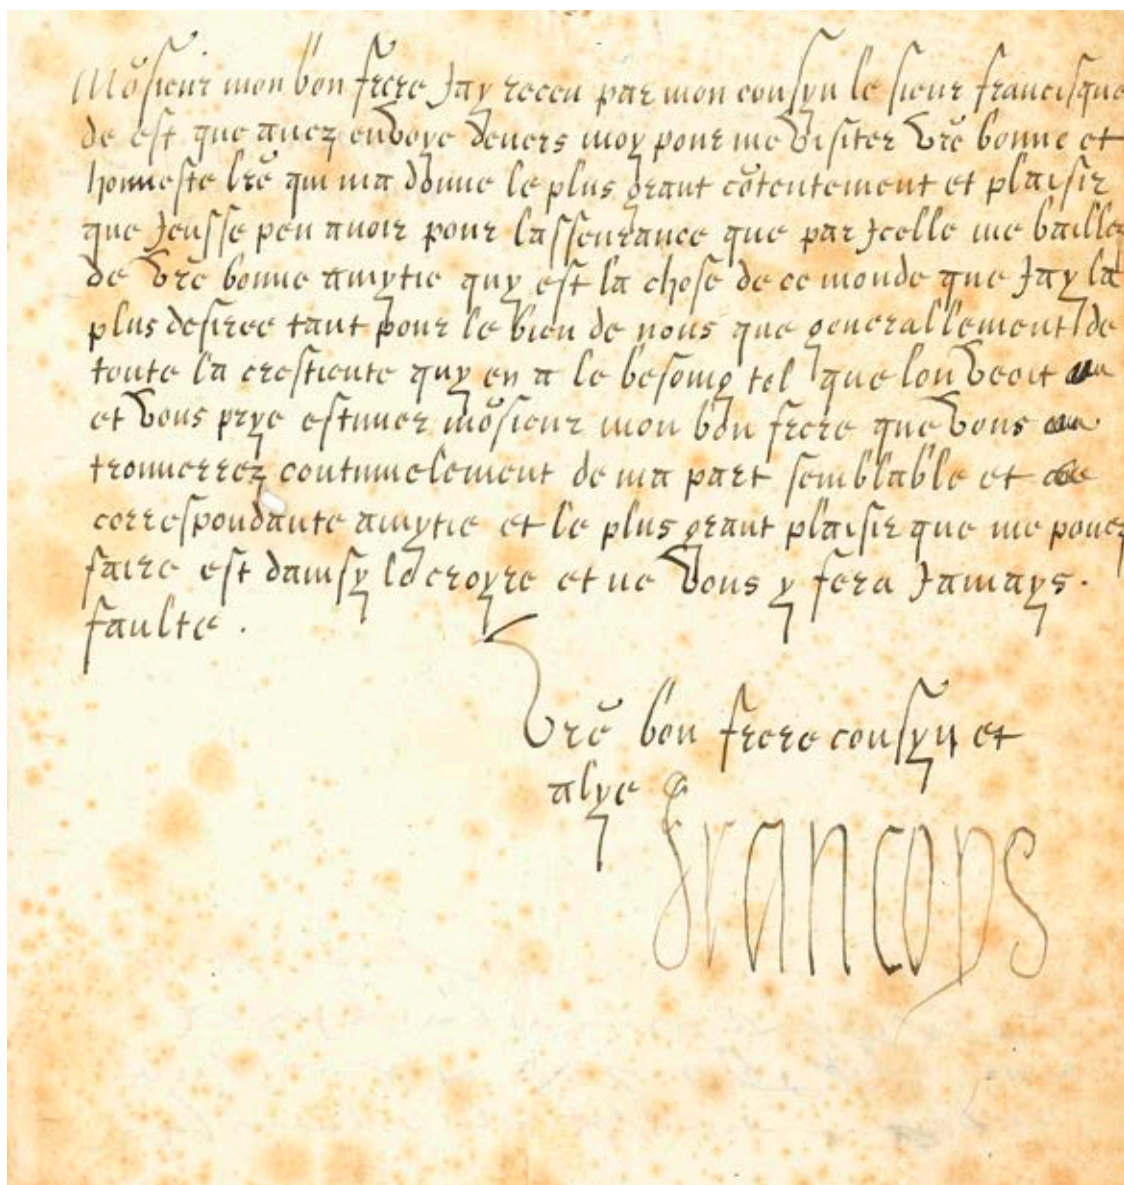 Mõsieur mon bon frere Jay receu par mon cousyn le sieur francisque
de est que avez envoye devers moy pour me visiter vr̃e bonne et
honneste lr̃e qui ma donne le plus grant cõtentement et plaisir
que Jeusse peu avoir pour lasseurance que par Jcelle me baillez
de vr̃e bonne amytie quy est la chose de ce monde que Jay la
plus desiree tant pour le bien de nous que generallement de
toute la crestiente quy en a le besoing tel que lon veoit
et vous prye estimer mõsieur mon bon frere que vous
trouverrez continuelement de ma part semblable et
correspondante amytie et le plus grant plaisir que me pouez
faire est dainsy le croyre et ne vous y fera Jamays.
faulte.
Vr̃e bon frere cousyn et
alye
Francoys